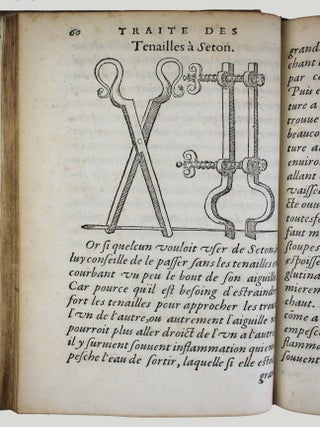 60 TRAITE DES
Tenailles à Seton.
Or si quelcun vouloit vser de Seton,
luy conseille de le passer sans les tenailles e
courbant vu peu le bout de son aiguille
Car pource qu'il est besoing d'estraindr
fort les tenailles pour approcher les trou
l'vn de l'autre, ou autrement l'aiguille n
pourroit plus aller droict de l'vn à l'autre
il y survient souuent inflammation qui em
pesche l'eau de sortir, laquelle si elle esto
gran
grand
chant l
par ca
Puis e
ture a
trouue
beauco
ture
enuiro
allant
vaissea
cte ouu
toutesfo
faut m
stoupes
espoisse
glutina
mierem
chaut.
côme a
empesc
souuent